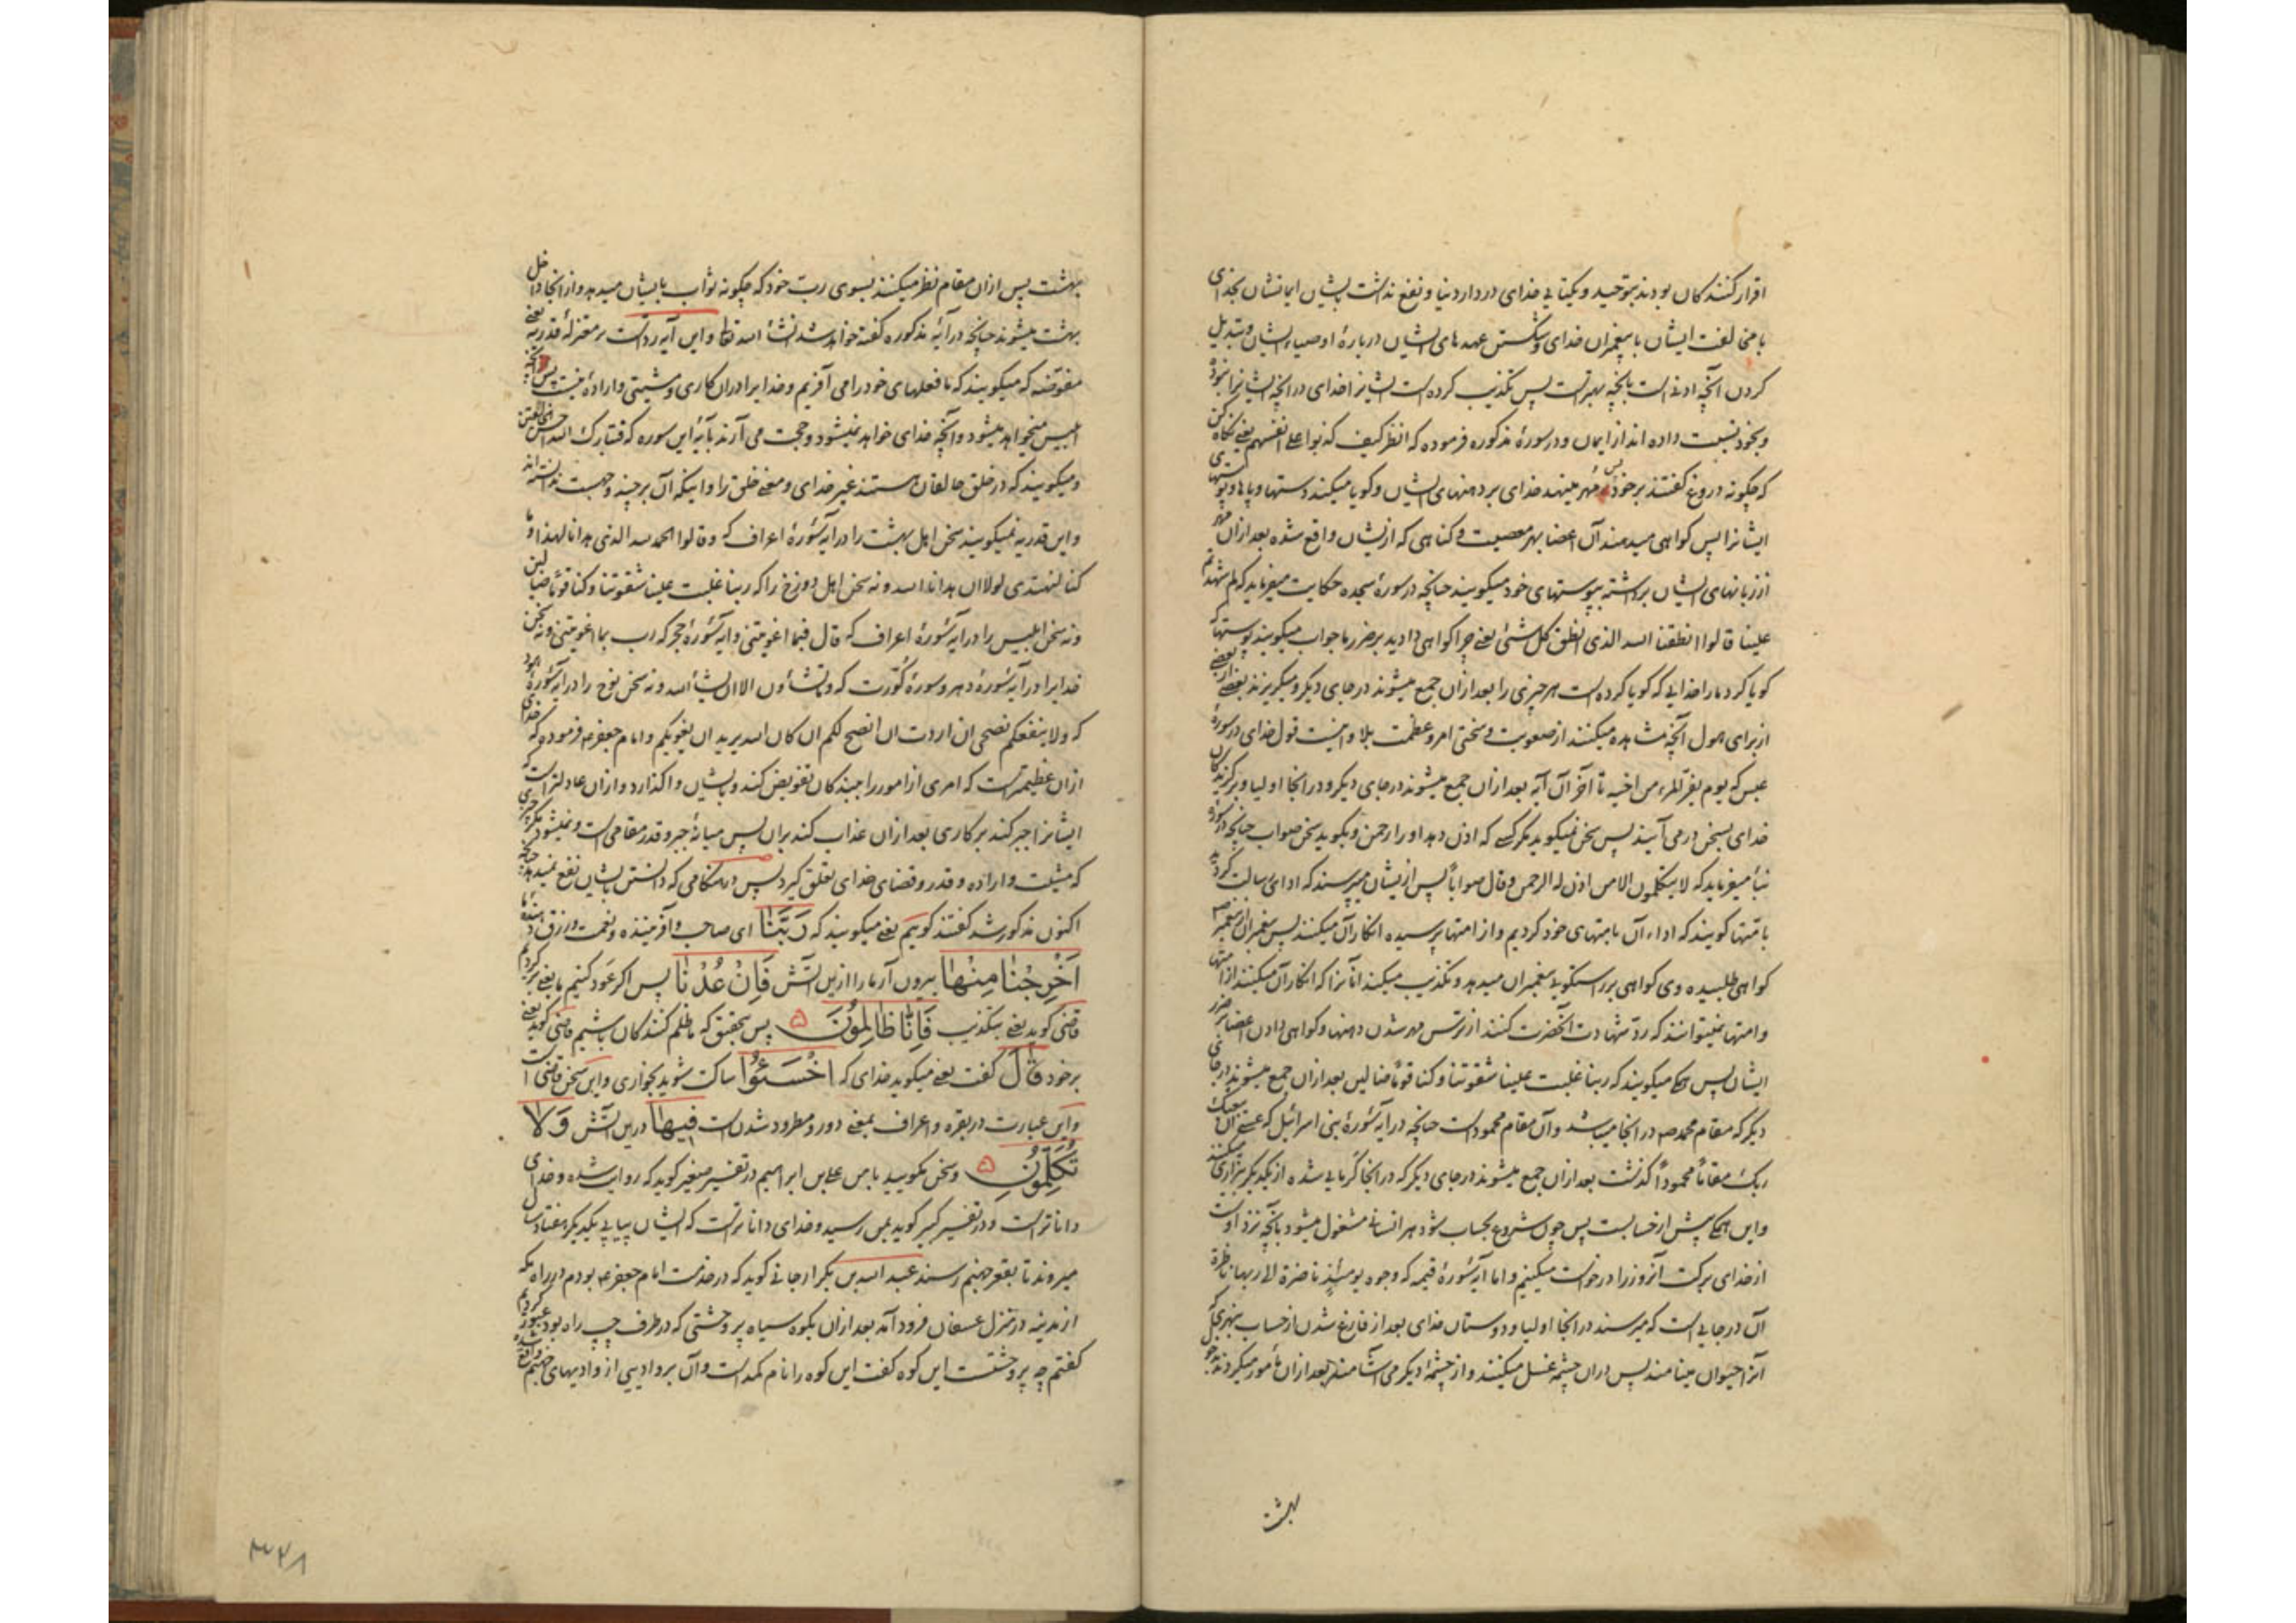 اقرار کنندکان بودند بتوحید و یکتایی خدای در دار دنیا و نفع نداشت بایشان ایمانشان بخدای
با مخالفت ایشان با پیغمبران خدای و شکستن عهدهای ایشان درباره اوصیاء ایشان و تبدیل
کردن آنچه ادنی است بآنچه بهتر است پس تکذیب کرده است ایشانرا خدای در آنچه ایشانرا نبود
و بخود نسبت داده اند از ایمان و در سورهٔ مذکوره فرموده که انظر کیف کذبوا علی انفسهم یعنی نگاه کن
که چکونه دروغ گفتند بر خود پس مهر مینهد خدای بر دهنهای ایشان و کویا میکند دستها و پاها و پوستهای
ایشانرا پس کواهی میدهند آن اعضا بهر معصیت و کناهی که ازیشان واقع شده بعد ازان مهر
از زبانهای ایشان برداشته بپوستهای خود میکویند چنانچه در سورهٔ سجده حکایت میفرماید که لم شهدتم
علینا قالوا انطقنا الله الذی انطق کل شئ یعنی چرا کواهی دادید بر ضرر ما جواب میکویند پوستها که
کویا کرد ما را خدایی که کویا کرده است هر چیزی را بعد ازان جمع میشوند در جای دیکر و میکریزند بعضی از بعضی
از برای هول آنچه مشاهده میکنند از صعوبت و سختی امر و عظمت بلا و اینست قول خدای در سورهٔ
عبس که یوم یفر المرء من اخیه تا آخر آن آیه بعد ازان جمع میشوند در جای دیکر و در آنجا اولیا و برکزیدکان
خدای بسخن درمی آیند پس سخن نمیکوید مکر کسی که اذن دهد او را رحمن و بکوید سخن صواب چنانچه در سورهٔ
نبأ میفرماید که لا یتکلمون الا من اذن له الرحمن و قال صواباً پس ازیشان میپرسند که ادای رسالت کردید
بامتها کویند که اداء آن بامتهای خود کردیم و از امتها پرسیده انکار آن میکنند پس پیغمبران از پیغمبر صه
کواهی طلبیده وی کواهی بر راستکویی پیغمبران میدهد و تکذیب میکند آنانرا که انکار آن میکنند از امتها
و امتها نمیتوانند که رد شهادت آنحضرت کنند از ترس مهر شدن دهنها و کواهی دادن اعضا بر ضرر
ایشان پس همکی میکویند که ربنا غلبت علینا شقوتنا و کنا قوماً ضالین بعد ازان جمع میشوند در جای
دیکر که مقام محمد صه در آنجا میباشد و آن مقام محمود است چنانچه در آیهٔ سورهٔ بنی اسرائیل که عسی ان یبعثک
ربک مقاماً محموداً کذشت بعد ازان جمع میشوند در جای دیکر که در آنجا از یکدیکر بیزاری میکنند
و این همکی پیش از حسابست پس چون شروع بحساب شود هر انسانی مشغول میشود بآنچه نزد اوست
از خدای برکت آنروز را درخواست میکنیم و اما آیهٔ سورهٔ قیمه که وجوه یومئذ ناضرة الی ربها ناظرة
آن در جایی است که میرسند در آنجا اولیا و دوستان خدای بعد از فارغ شدن از حساب بنهری که
آنرا حیوان مینامند پس دران چشمه غسل میکنند و از چشمهٔ دیکر می آشامند بعد ازان مأمور میکردند بدخول
بهشت
بهشت پس ازان مقام نظر میکنند بسوی رب خود که چکونه ثواب بایشان میدهد و از آنجا داخل
بهشت میشوند چنانچه در آیهٔ مذکوره کفته خواهد شد انشاء الله تعا و این آیه رد است بر معتزلهٔ قدریه یعنی
مفوضه که میکویند که ما فعلهای خود را می آفرینیم و خدایرا دران کاری و مشیتی و ارادهٔ نیست پس آنچه
ابلیس میخواهد میشود و آنچه خدای خواهد نمیشود و حجت می آرند بآیهٔ این سوره که فتبارک الله احسن الخالقین
و میکویند که در خلق خالقان هستند غیر خدای و معنی خلق را و اینکه آن بر چند وجهست ندانسته اند
و این قدریه نمیکویند سخن اهل بهشت را در آیهٔ سورهٔ اعراف که و قالوا الحمد لله الذی هدانا لهذا و ما
کنا لنهتدی لولا ان هدانا الله و نه سخن اهل دوزخ را که ربنا غلبت علینا شقوتنا و کنا قوماً ضالین
و نه سخن ابلیس را در آیهٔ سورهٔ اعراف که قال فبما اغویتنی و آیهٔ سورهٔ حجر که رب بما اغویتنی و نه سخن
خدایرا در آیهٔ سورهٔ دهر و سورهٔ کورت که و ما تشاؤن الا ان یشاء الله و نه سخن نوح را در آیهٔ سورهٔ هود
که و لا ینفعکم نصحی ان اردت ان انصح لکم ان کان الله یرید ان یغویکم و امام جعفر عه فرموده که خدای
ازان عظیمتر است که امری از امور را ببندکان تفویض کند و بایشان واکذارد و ازان عادلتر است که
ایشانرا جبر کند بر کاری بعد ازان عذاب کند بران پس میانهٔ جبر و قدر مقامی است و نمیشود مکر چیزی
که مشیت و اراده و قدر و قضای خدای تعلق کیرد پس در هنکامی که دانستن بایشان نفع نمیدهد چنانچه
اکنون مذکور شد کفتند کوییم یعنی میکویند که رَبَّنَا ای صاحب و آفریننده و نعمت و رزق دهنده ما
اَخْرِجْنَا مِنْهَا بیرون آر ما را ازین آتش فَاِنْ عُدْنَا پس اکر عود کنیم ما یعنی برکردیم
قاضی کوید یعنی بتکذیب فَاِنَّا ظَالِمُونَ ۵ پس بتحقیق که ما ظلم کنندکان باشیم قاضی کوید یعنی
بر خود قَالَ کفت یعنی میکوید خدای که اخْسَئُوا ساکت شوید بخواری و این سخن قاضی است
و این عبارت در بقره و اعراف بمعنی دور و مطرود شدن است فِیهَا درین آتش وَ لَا
تُکَلِّمُونِ ۵ و سخن مکویید با من علی بن ابراهیم در تفسیر صغیر کوید که روایت شده و خدای
داناتر است و در تفسیر کبیر کوید بمن رسیده و خدای داناتر است که ایشان پیاپی یکدیکر هفتاد سال
میروند تا بقعر جهنم رسند عبد الله بن بکر ارجانی کوید که در خدمت امام جعفر عه بودم در راه مکه
از مدینه در منزل عسفان فرود آمد بعد ازان بکوه سیاه پر وحشتی که در طرف چپ راه بود عبور کردیم
کفتم چه پر وحشتست این کوه کفت این کوه را نام کمد است و آن بر وادیی از وادیهای جهنم واقع شده
۳۲۸